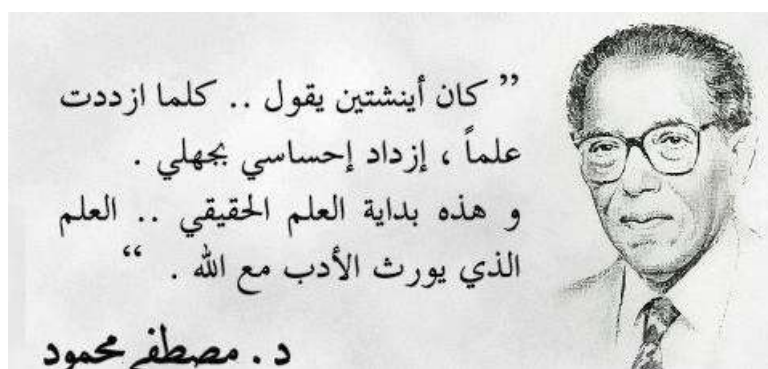 ” كان أينشتين يقول .. كلما ازددت
علماً ، إزداد إحساسي بجهلي .
و هذه بداية العلم الحقيقي .. العلم
الذي يورث الأدب مع الله . “
د . مصطفى محمود